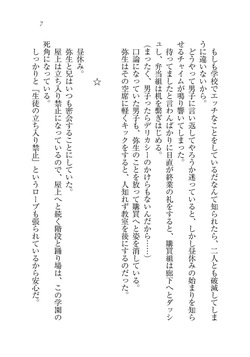 7
もしも学校でエッチなことをしているだなんて知られたら、二人とも破滅してしま
うに違いないから。
どうやって男子に言い返してやろうか迷っていると、しかし昼休みの始まりを知ら
せるチャイムが鳴り響いてしまった。
待ってましたと言わんばかりに日直が終業の礼をすると、購買組は廊下へとダッシ
ュし、弁当組は机を繋ぎはじめる。
（まったく、男子ったらデリカシーのかけらもないんだから……）
口論になっていた男子も、弥生のことを放って購買へと姿を消している。
弥生はその空席に軽くキックをすると、人知れず教室を後にするのだった。
☆
昼休み。
弥生と兄はいつも密会することにしている。
屋上は立ち入り禁止になっているので、屋上へと続く階段と踊り場は、この学園の
死角になっている。
しっかりと『生徒の立ち入り禁止』というロープも張られているから安心だ。